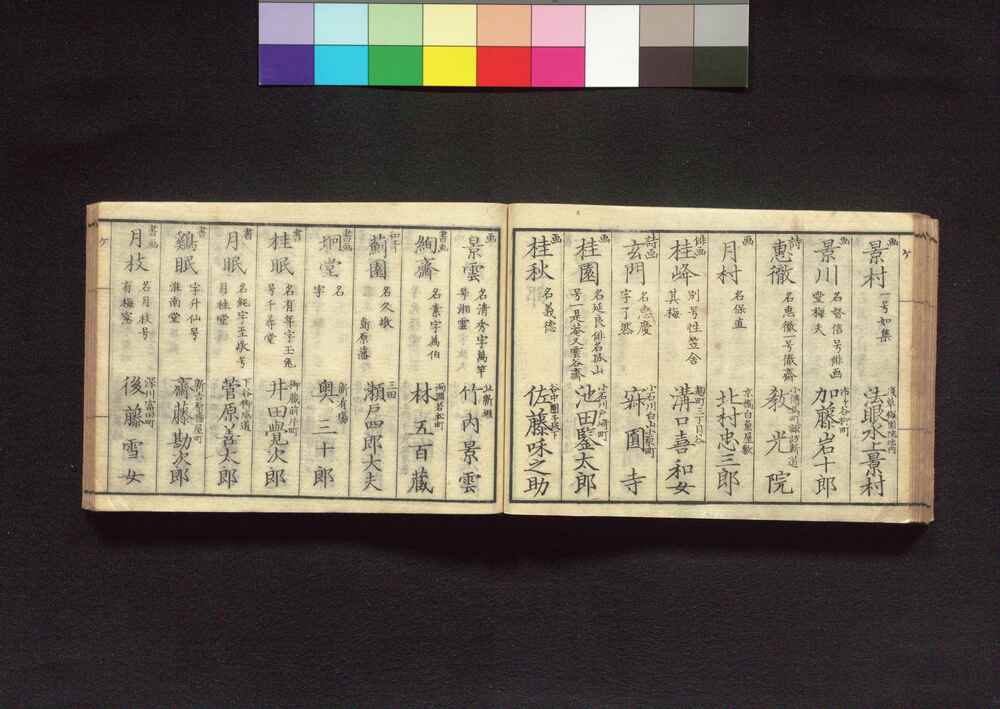 ケ
画
景村
一号如集
法眼水上景村
画
景川
名督信号俳画
堂梅夫
加藤岩十郎
詩
恵徹
名恵徹一号徹斎
教光院
画
月村
名保直
京橋白魚屋敷
北村忠三郎
俳画
桂峰
別号性笠舎
其梅
麹町三丁目谷
溝口喜和女
詩画
玄門
名恵慶
字了器
小石川白山小原町
寂圓寺
画
桂園
名延良俳名孤山
号一是菴又雲谷斎
池田鑒太郎
画
桂秋
名義徳
佐藤咊之助
画
景雲
名清秀字萬竿
号湘雲
竹内景雲
書画
絢齋
名素字萬伯
林五百蔵
蘭園
名久敬
三田
瀬戸四郎大夫
書画
坰堂
名
字
新道場
奥三十郎
書
桂眠
名有年字玉兎
号千尋堂
御蔵前井町
井田覺次郎
書
月眠
月桂堂
菅原善太郎
書
鷄眠
字升仙号
淮南堂
齋藤勘次郎
書画
月枝
名月枝号
有梅窓
深川富田町
後藤雪女
ケ